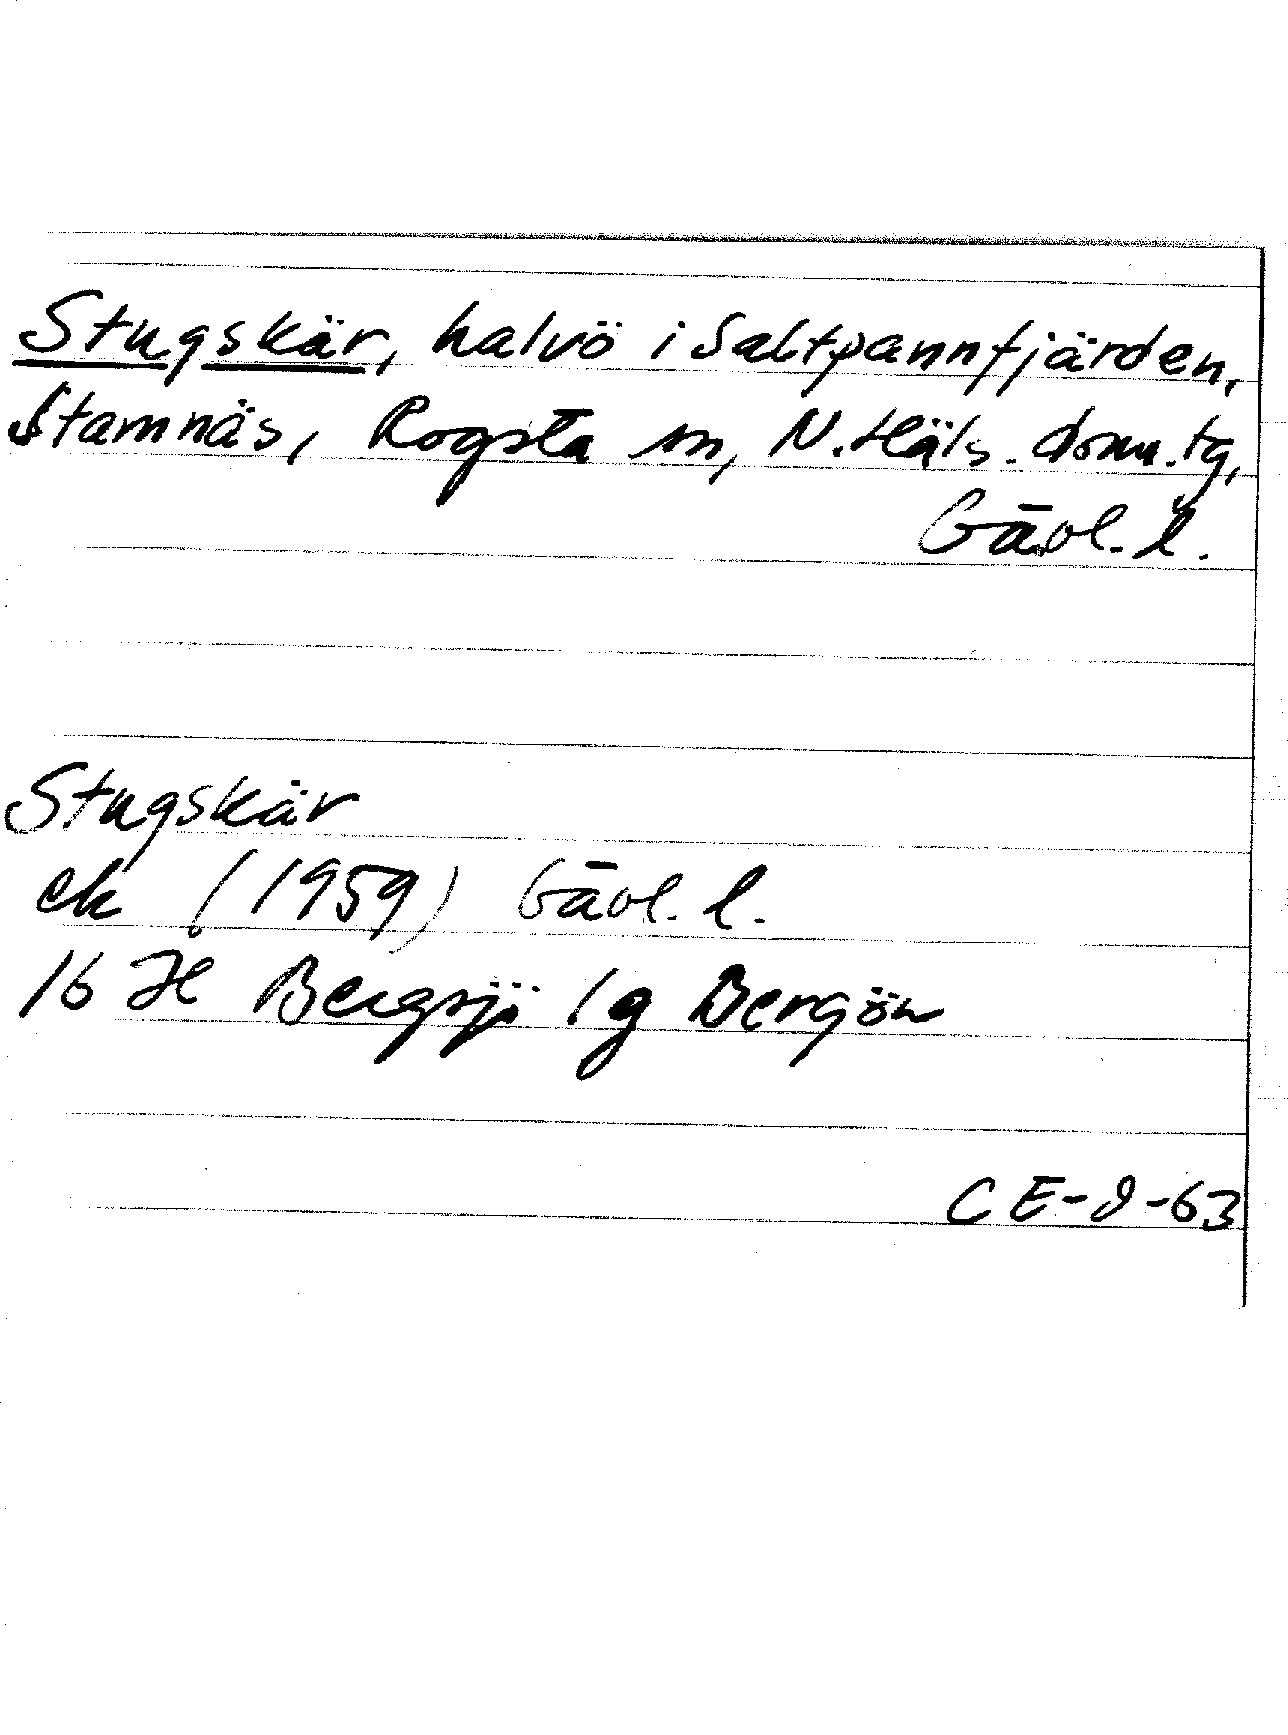 Stugskär, halvö i Saltpannfjärden,
Stamnäs, Rogsta sn, N. Häls. doms. tg,
Gävl. l.
Stugskär
ek (1959) Gävl. l.
16 H Bergsjö 1g Bergön
CE-9-63